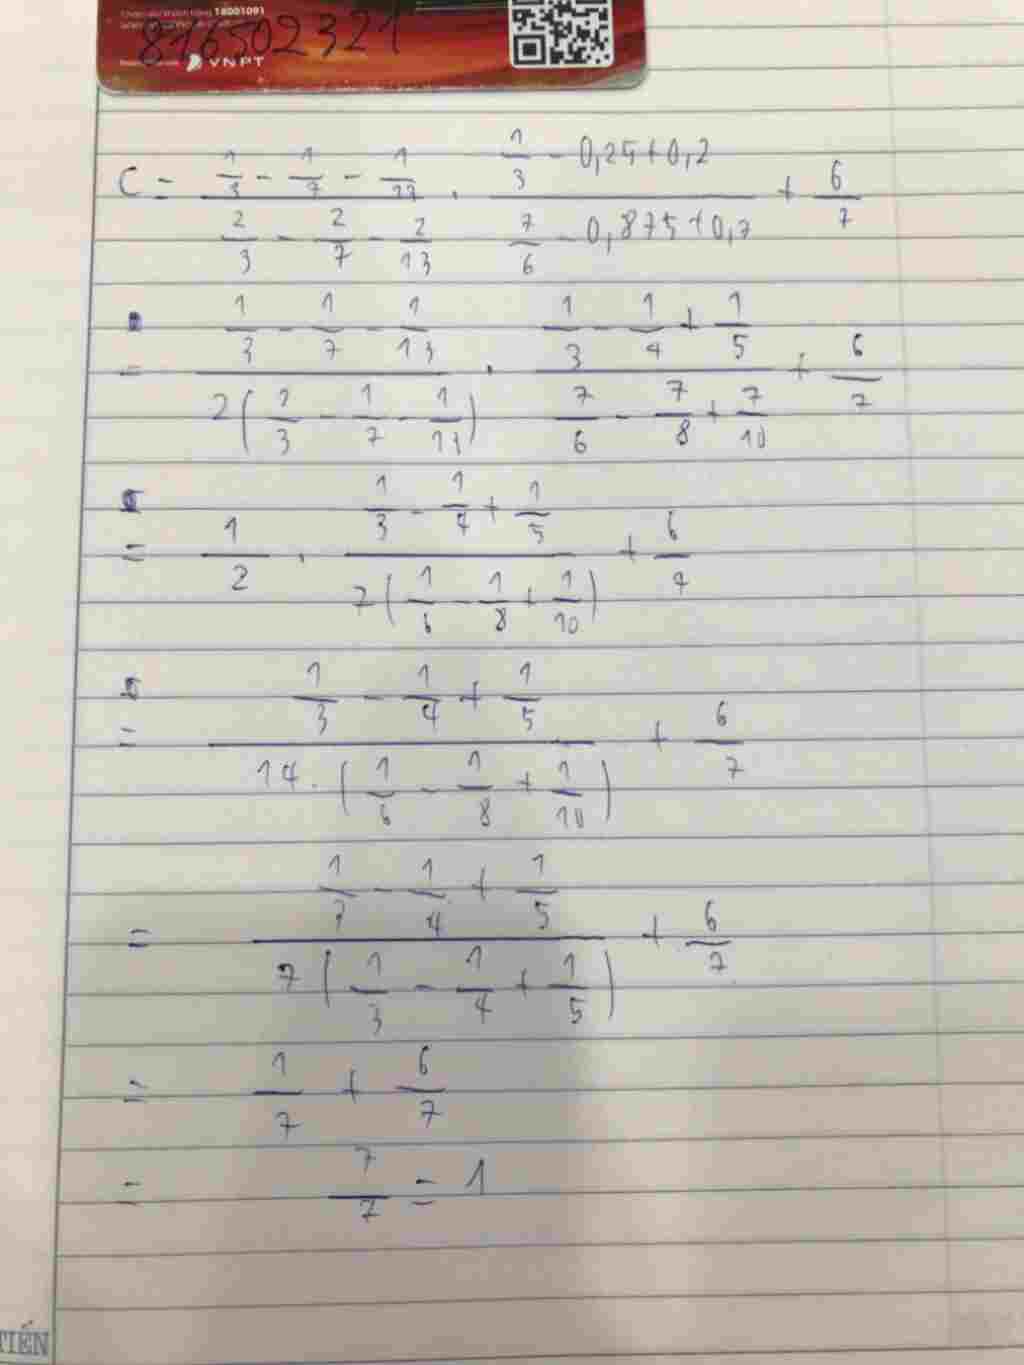 18001091
816502321
VNPT
C = (1/3 - 1/7 - 1/13)/(2/3 - 2/7 - 2/13) . (1/3 - 0,25 + 0,2)/(7/6 - 0,875 + 0,7) + 6/7
= (1/3 - 1/7 - 1/13)/(2(1/3 - 1/7 - 1/13)) . (1/3 - 1/4 + 1/5)/(7/6 - 7/8 + 7/10) + 6/7
= 1/2 . (1/3 - 1/4 + 1/5)/(7(1/6 - 1/8 + 1/10)) + 6/7
= (1/3 - 1/4 + 1/5)/(14.(1/6 - 1/8 + 1/10)) + 6/7
= (1/3 - 1/4 + 1/5)/(7(1/3 - 1/4 + 1/5)) + 6/7
= 1/7 + 6/7
= 7/7 = 1
TIẾN